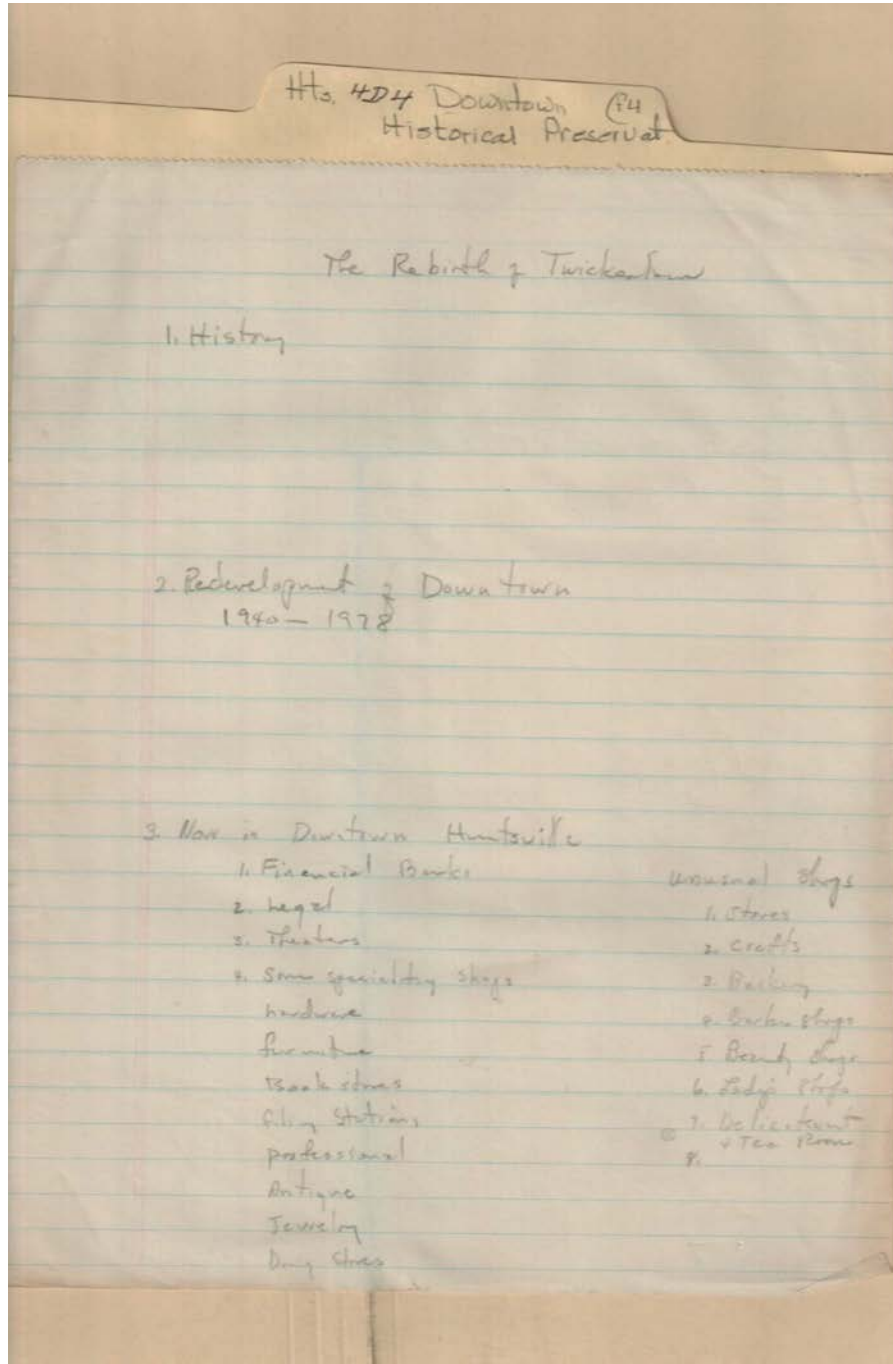 Hts. 4D4 Downtown (P4
Historical Preservat.
The Rebirth of Twickentown
1. History
2. Redevelopment of Downtown
1940 — 1978
3. Now in Downtown Huntsville
1. Financial Banks
2. Legal
3. Theaters
4. Some speciality shops
hardware
furniture
Book stores
filing Stations
professional
Antique
Jewelry
Drug stores
unusual shops
1. Stores
2. Crafts
3. Backery
4. Barber Shops
5 Beauty shops
6. Ladys Shops
7. 
+ Tea Room
8.